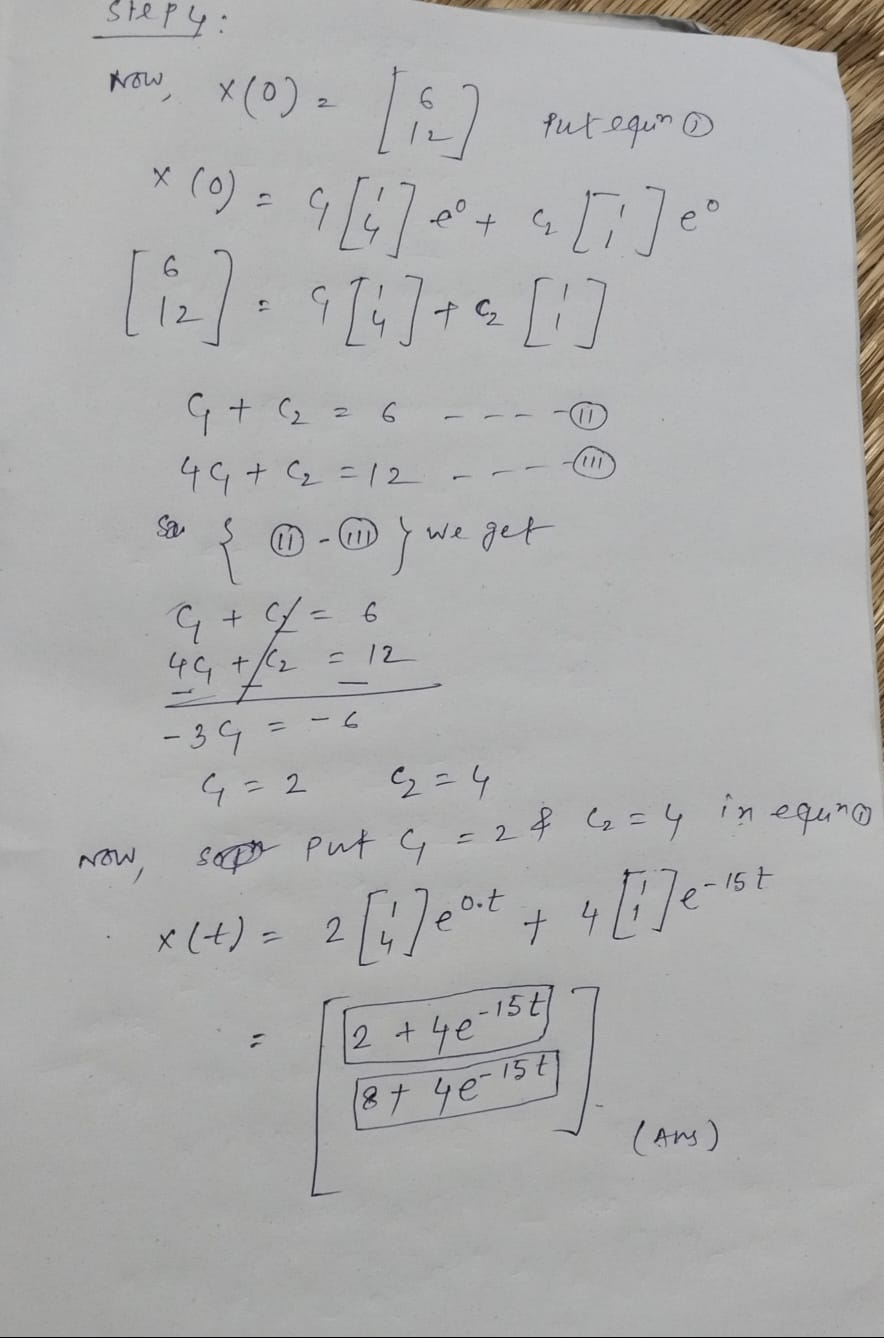 Step 4:
Now, x(0) = [6 12] Put equn ①
x(0) = C₁ [1 4] e⁰ + C₂ [1 1] e⁰
[6 12] = C₁ [1 4] + C₂ [1 1]
C₁ + C₂ = 6 - - - - (II)
4C₁ + C₂ = 12 - - - - (III)
So { (II) - (III) } we get
C₁ + C₂ = 6
4C₁ + C₂ = 12
- - -
-3C₁ = -6
C₁ = 2 C₂ = 4
Now, put C₁ = 2 & C₂ = 4 in equn ①
x(t) = 2 [1 4] e^0.t + 4 [1 1] e^-15t
= [2 + 4e^-15t
8 + 4e^-15t].
(Ans)